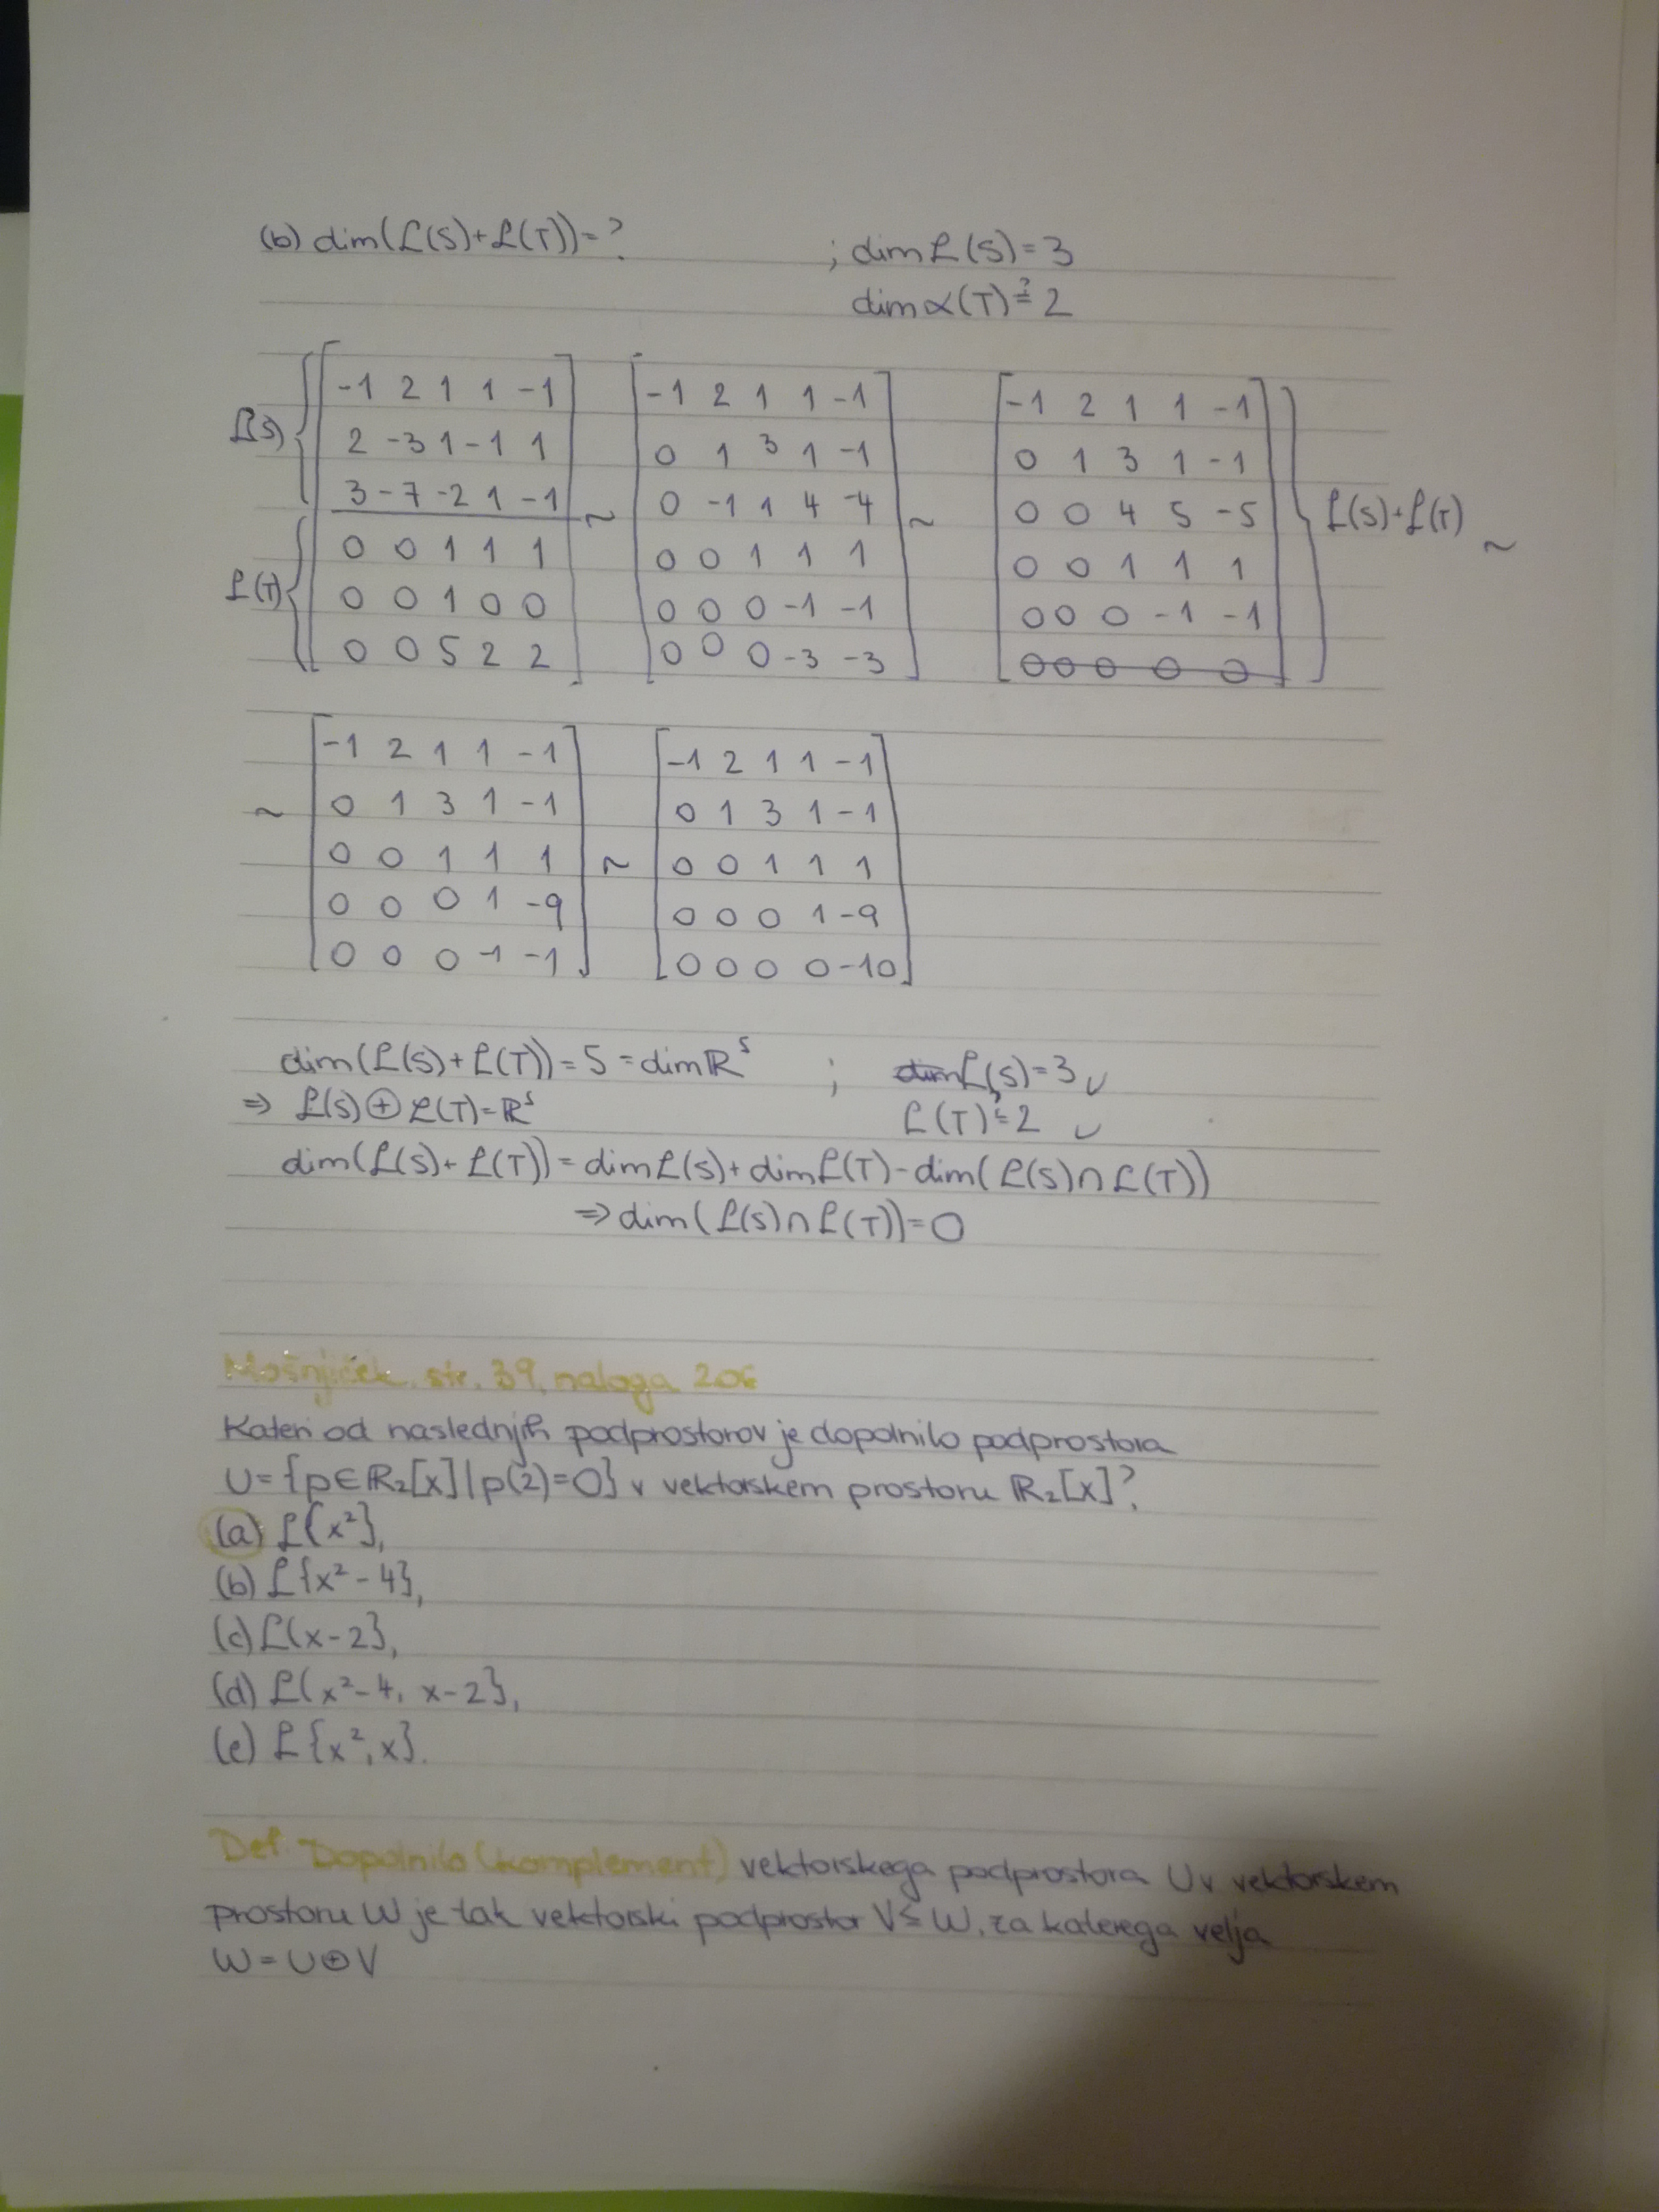 (b) dim(ℒ(S)+ℒ(T))=? ; dim ℒ(S)=3
dim α(T)≟2
ℒ(S) { [ -1 2 1 1 -1 ] [ -1 2 1 1 -1 ] [ -1 2 1 1 -1 ]
2 -3 1 -1 1   0 1 3 1 -1   0 1 3 1 -1
3 -7 -2 1 -1 ~ 0 -1 1 4 -4 ~ 0 0 4 5 -5 } ℒ(S)+ℒ(T) ~
ℒ(T) { 0 0 1 1 1   0 0 1 1 1   0 0 1 1 1
0 0 1 0 0   0 0 0 -1 -1   0 0 0 -1 -1
0 0 5 2 2   0 0 0 -3 -3   0 0 0 0 0
[ -1 2 1 1 -1 ] [ -1 2 1 1 -1 ]
~ 0 1 3 1 -1   0 1 3 1 -1
0 0 1 1 1 ~ 0 0 1 1 1
0 0 0 1 -9   0 0 0 1 -9
0 0 0 -1 -1   0 0 0 0 -10
dim(ℒ(S)+ℒ(T))=5=dimℝ⁵ ; dimℒ(S)=3 ✓
⇒ ℒ(S)⊕ℒ(T)=ℝ⁵   ℒ(T)≟2 ✓
dim(ℒ(S)+ℒ(T))=dimℒ(S)+dimℒ(T)-dim(ℒ(S)∩ℒ(T))
⇒dim(ℒ(S)∩ℒ(T))=0
Mošnjiček, str. 39, naloga 206
Kateri od naslednjih podprostorov je dopolnilo podprostora
U={p∈ℝ₂[x]|p(2)=0} v vektorskem prostoru ℝ₂[x]?
(a) ℒ{x²},
(b) ℒ{x²-4},
(c) ℒ{x-2},
(d) ℒ{x²-4, x-2},
(e) ℒ{x²,x}.
Def. Dopolnilo (komplement) vektorskega podprostora U v vektorskem
prostoru W je tak vektorski podprostor V≤W, za katerega velja
W=U⊕V